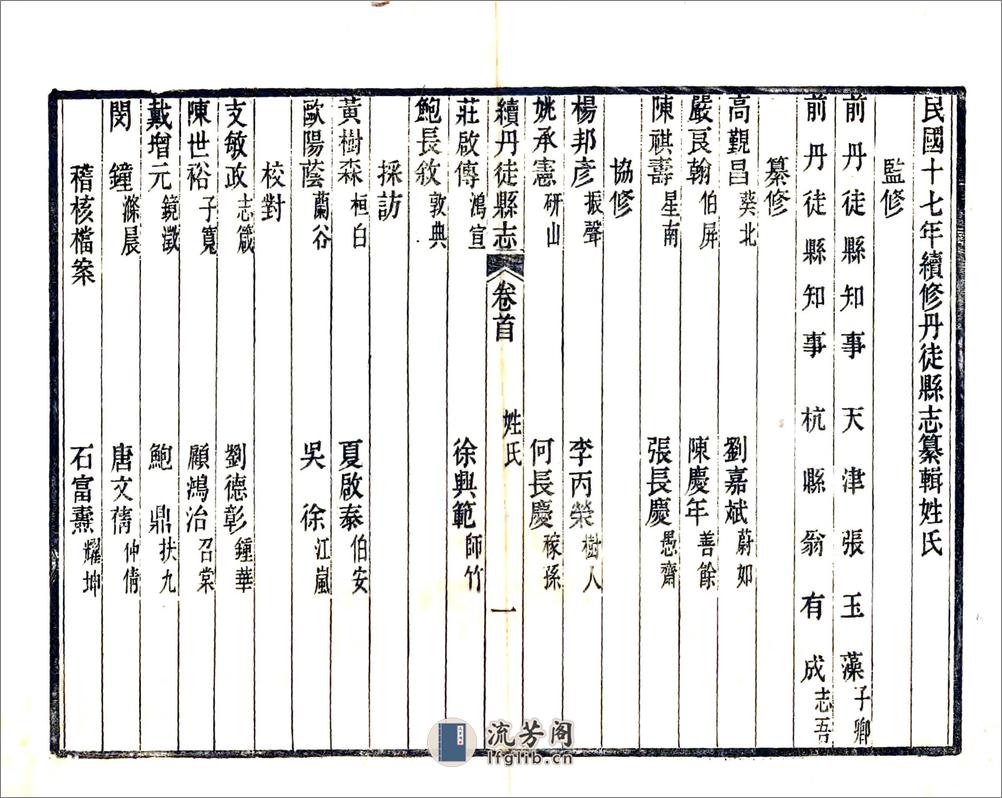 民國十七年續修丹徒縣志纂輯姓氏
監修
前丹徒縣知事 天津張玉藻 子卿
前丹徒縣知事 杭縣翁有成 志吾
纂修
高覲昌 葵北 劉嘉斌 蔚如
嚴良翰 伯屏 陳慶年 善餘
陳祺壽 星南 張長慶 愚齋
協修
楊邦彥 振聲 李丙榮 樹人
姚承憲 研山 何長慶 稼孫
續丹徒縣志 卷首 姓氏 一
莊啟傳 鴻宣 徐興範 師竹
鮑長敘 敦典
採訪
黃樹森 桓白 夏啟泰 伯安
歐陽蔭 蘭谷 吳徐 江嵐
校對
支敏政 志箴 劉德彰 鍾華
陳世裕 子寬 顧鴻治 召棠
戴增元 鏡澂 鮑鼎 扶九
閔鐘 滌晨 唐文倩 仲倩
稽核檔案
石富燾 耀坤
流芳阁
lfglib.cn